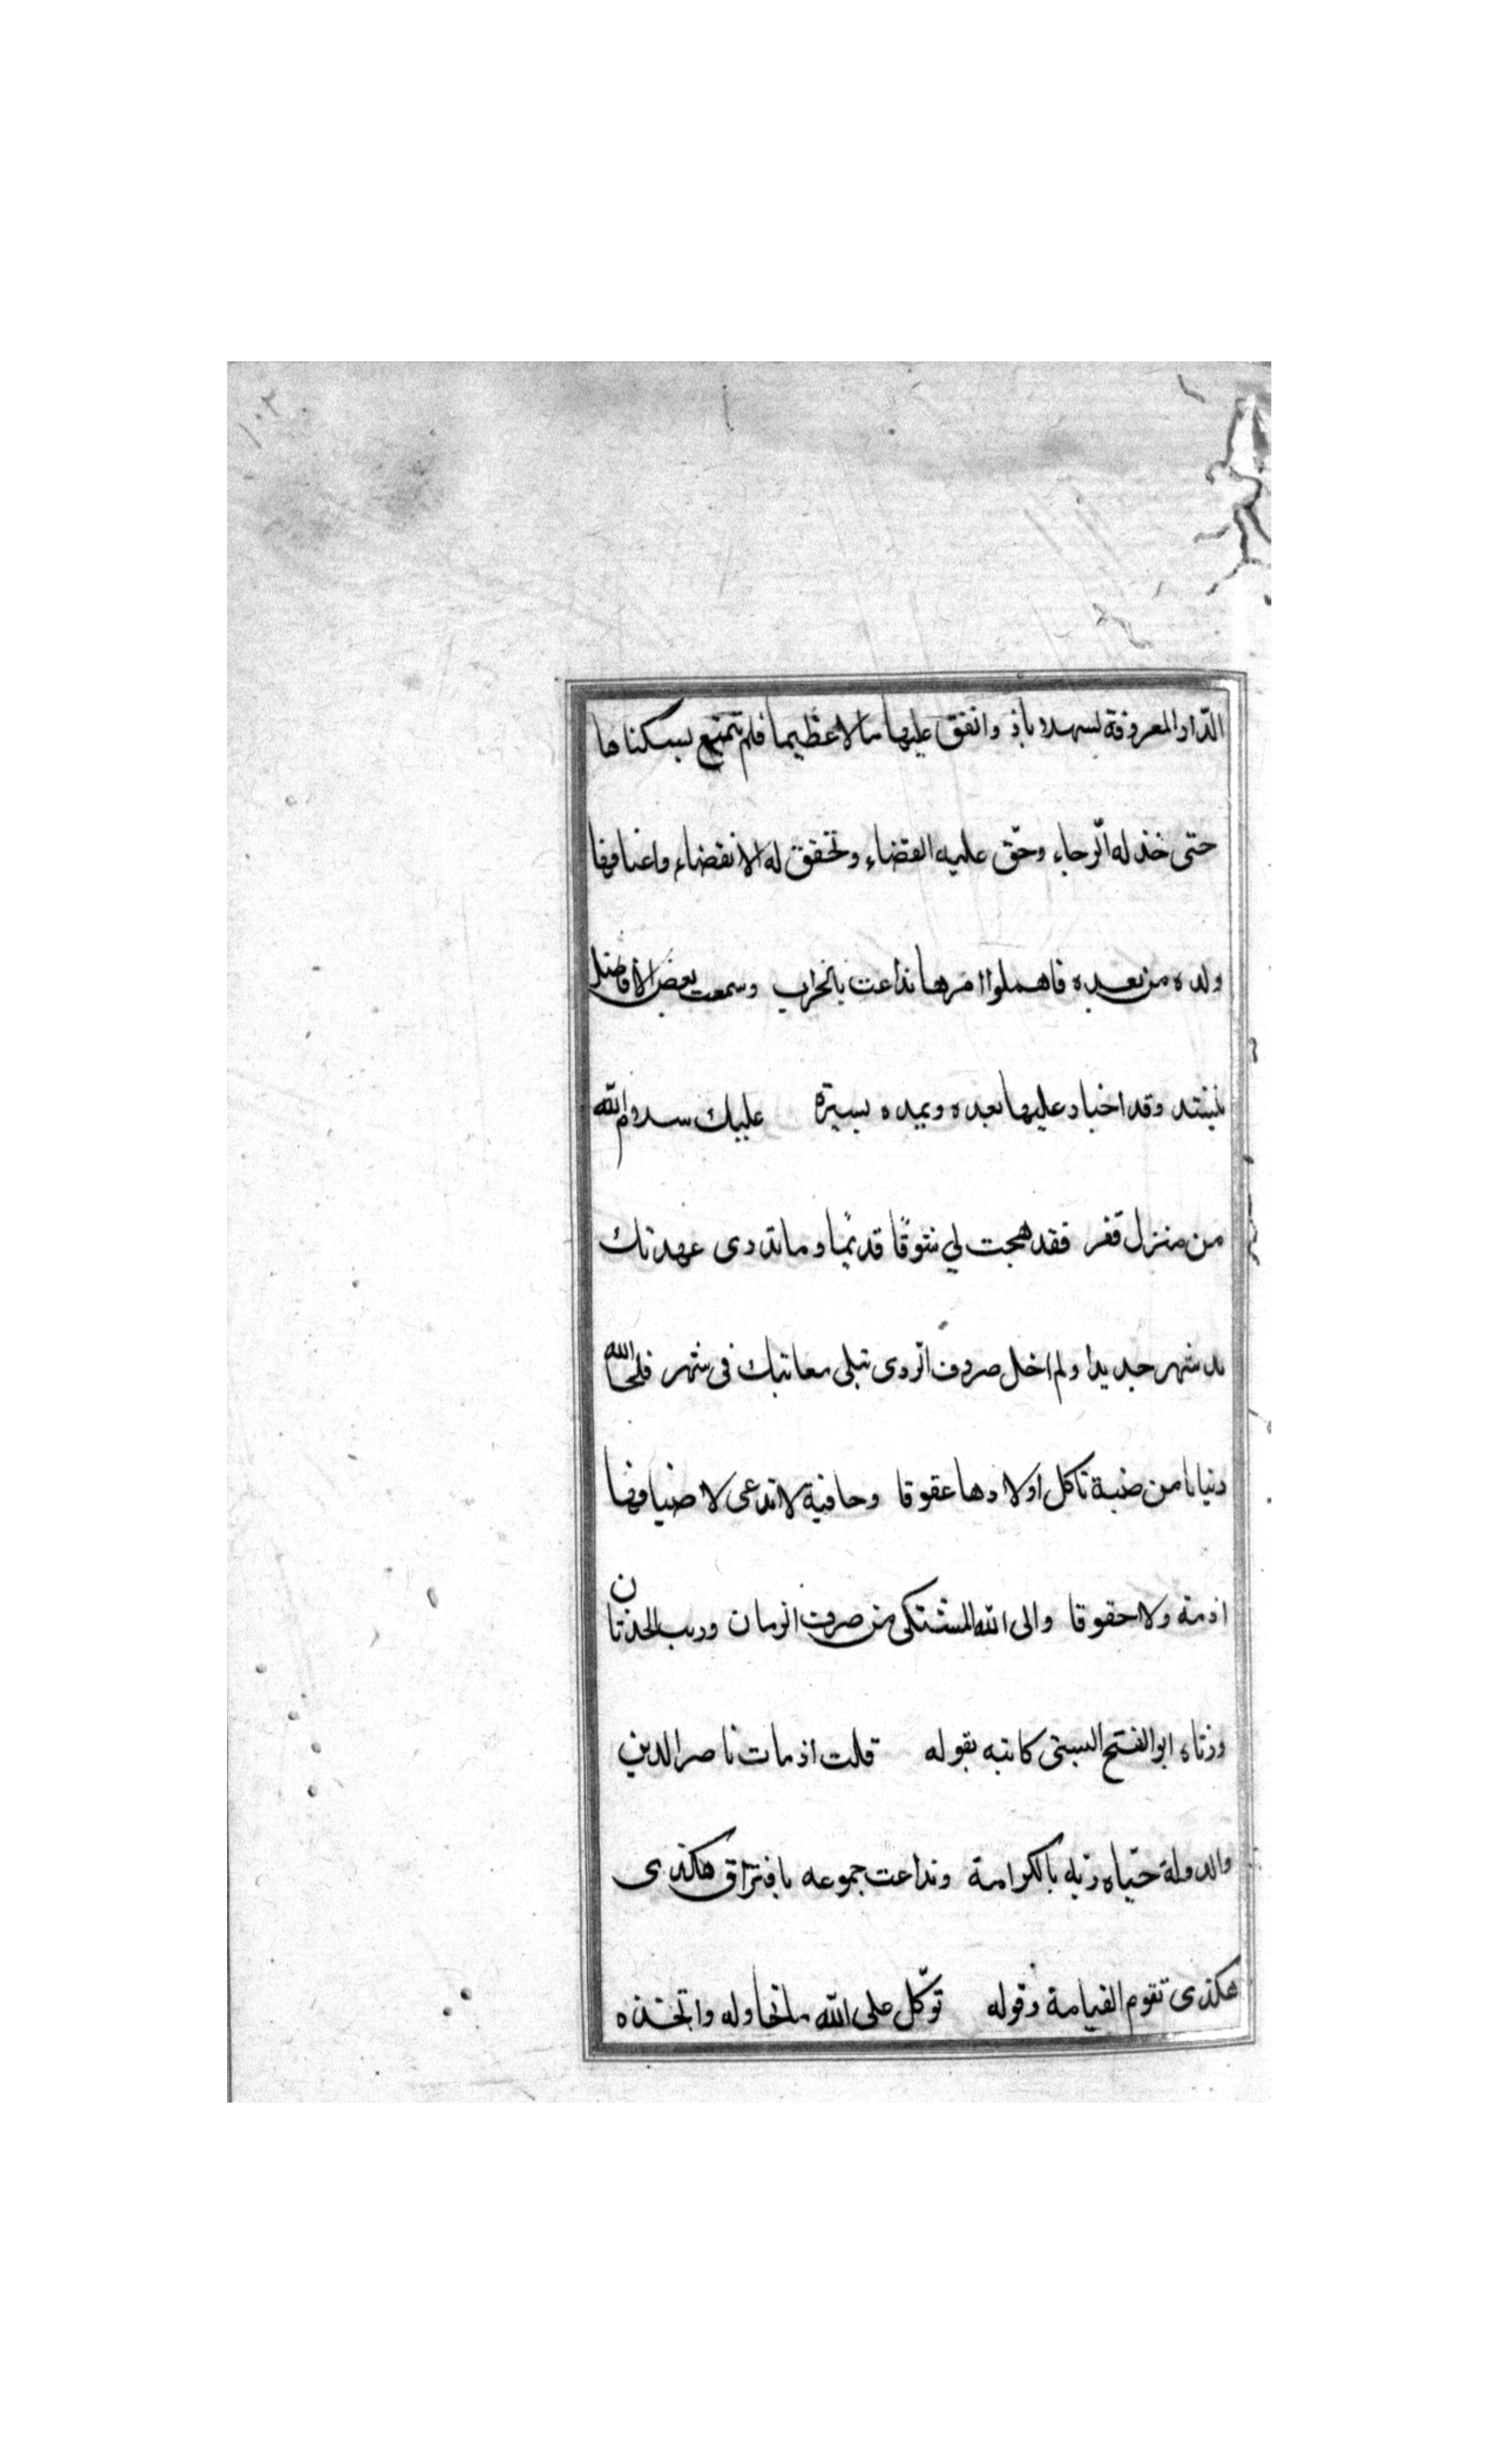 ١٠٢
الدّار المعروفة بسهدوباذ وانفق عليها مالا عظيما فلم يتمتع بسكناها
حتى خذله الّرجاء وحّق عليه القضاء وتحقق له الانقضاء واعتافها
ولده من بعده فاهملوا امرها تداعت بالخراب وسمعت بعض الافاضل
ينشد وقد اجتاد عليها بعده وبمده يسيرة عليك سلام اللّه
من منزل قفر فقد هجت لي شوقًا قديمًا وماتدرى عهدتك
مد شهر جديدا ولم اخل صروف الّردى تبلى معانيك فى شهر فلحى اللّه
دنيانا من ضبة تاكل اولادها عقوقا وجافية لاتدعى لاضيافها
اذمة ولاحقوقا والى اللّه المشتكى من صرف الزمان وريب الحدثان
ورثاه ابوالفتح البستى كاتبه بقوله قلت اذمات ناصرالدين
والدولة حيّاه ربّه بالكرامة وتداعت جموعه بافتراق هكذى
هكذى تقوم القيامة وقوله توّكل على اللّه ماتحاوله واتخذه